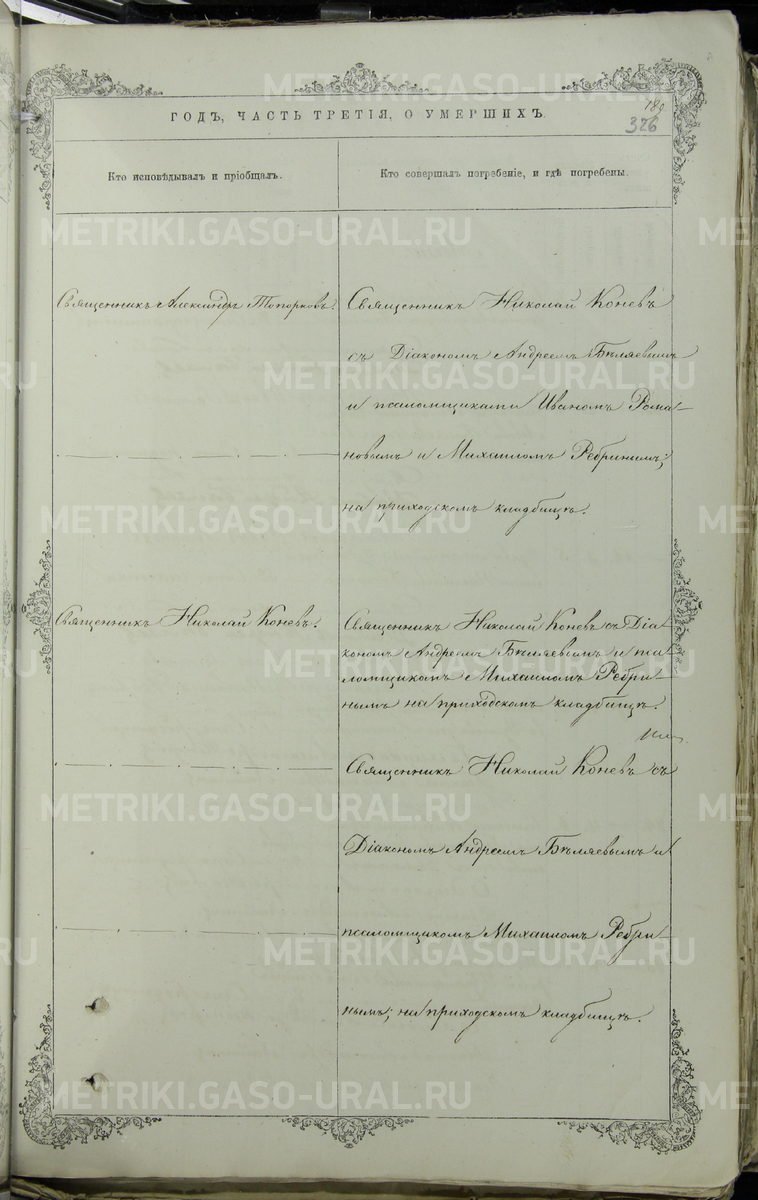 180
326
ГОДЪ, ЧАСТЬ ТРЕТІЯ, О УМЕРШИХЪ.
Кто исповѣдывалъ и пріобщалъ.
Кто совершалъ погребеніе, и гдѣ погребены.
Священникъ Александръ Топорковъ.
Священникъ Николай Коневъ
съ Діакономъ Андреемъ Бѣляевымъ
и псаломщиками Иваномъ Рома-
новымъ и Михаиломъ Ребринымъ;
на приходскомъ кладбищѣ.
Священникъ Николай Коневъ.
Священникъ Николай Коневъ съ Діа-
кономъ Андреемъ Бѣляевымъ и
ломщикомъ Михаиломъ Ребри-
нымъ на приходскомъ кладбищѣ.
Священникъ Николай Коневъ съ
Діакономъ Андреемъ Бѣляевымъ и
псаломщикомъ Михаиломъ Ребри-
нымъ; на приходскомъ кладбищѣ.
METRIKI.GASO-URAL.RU